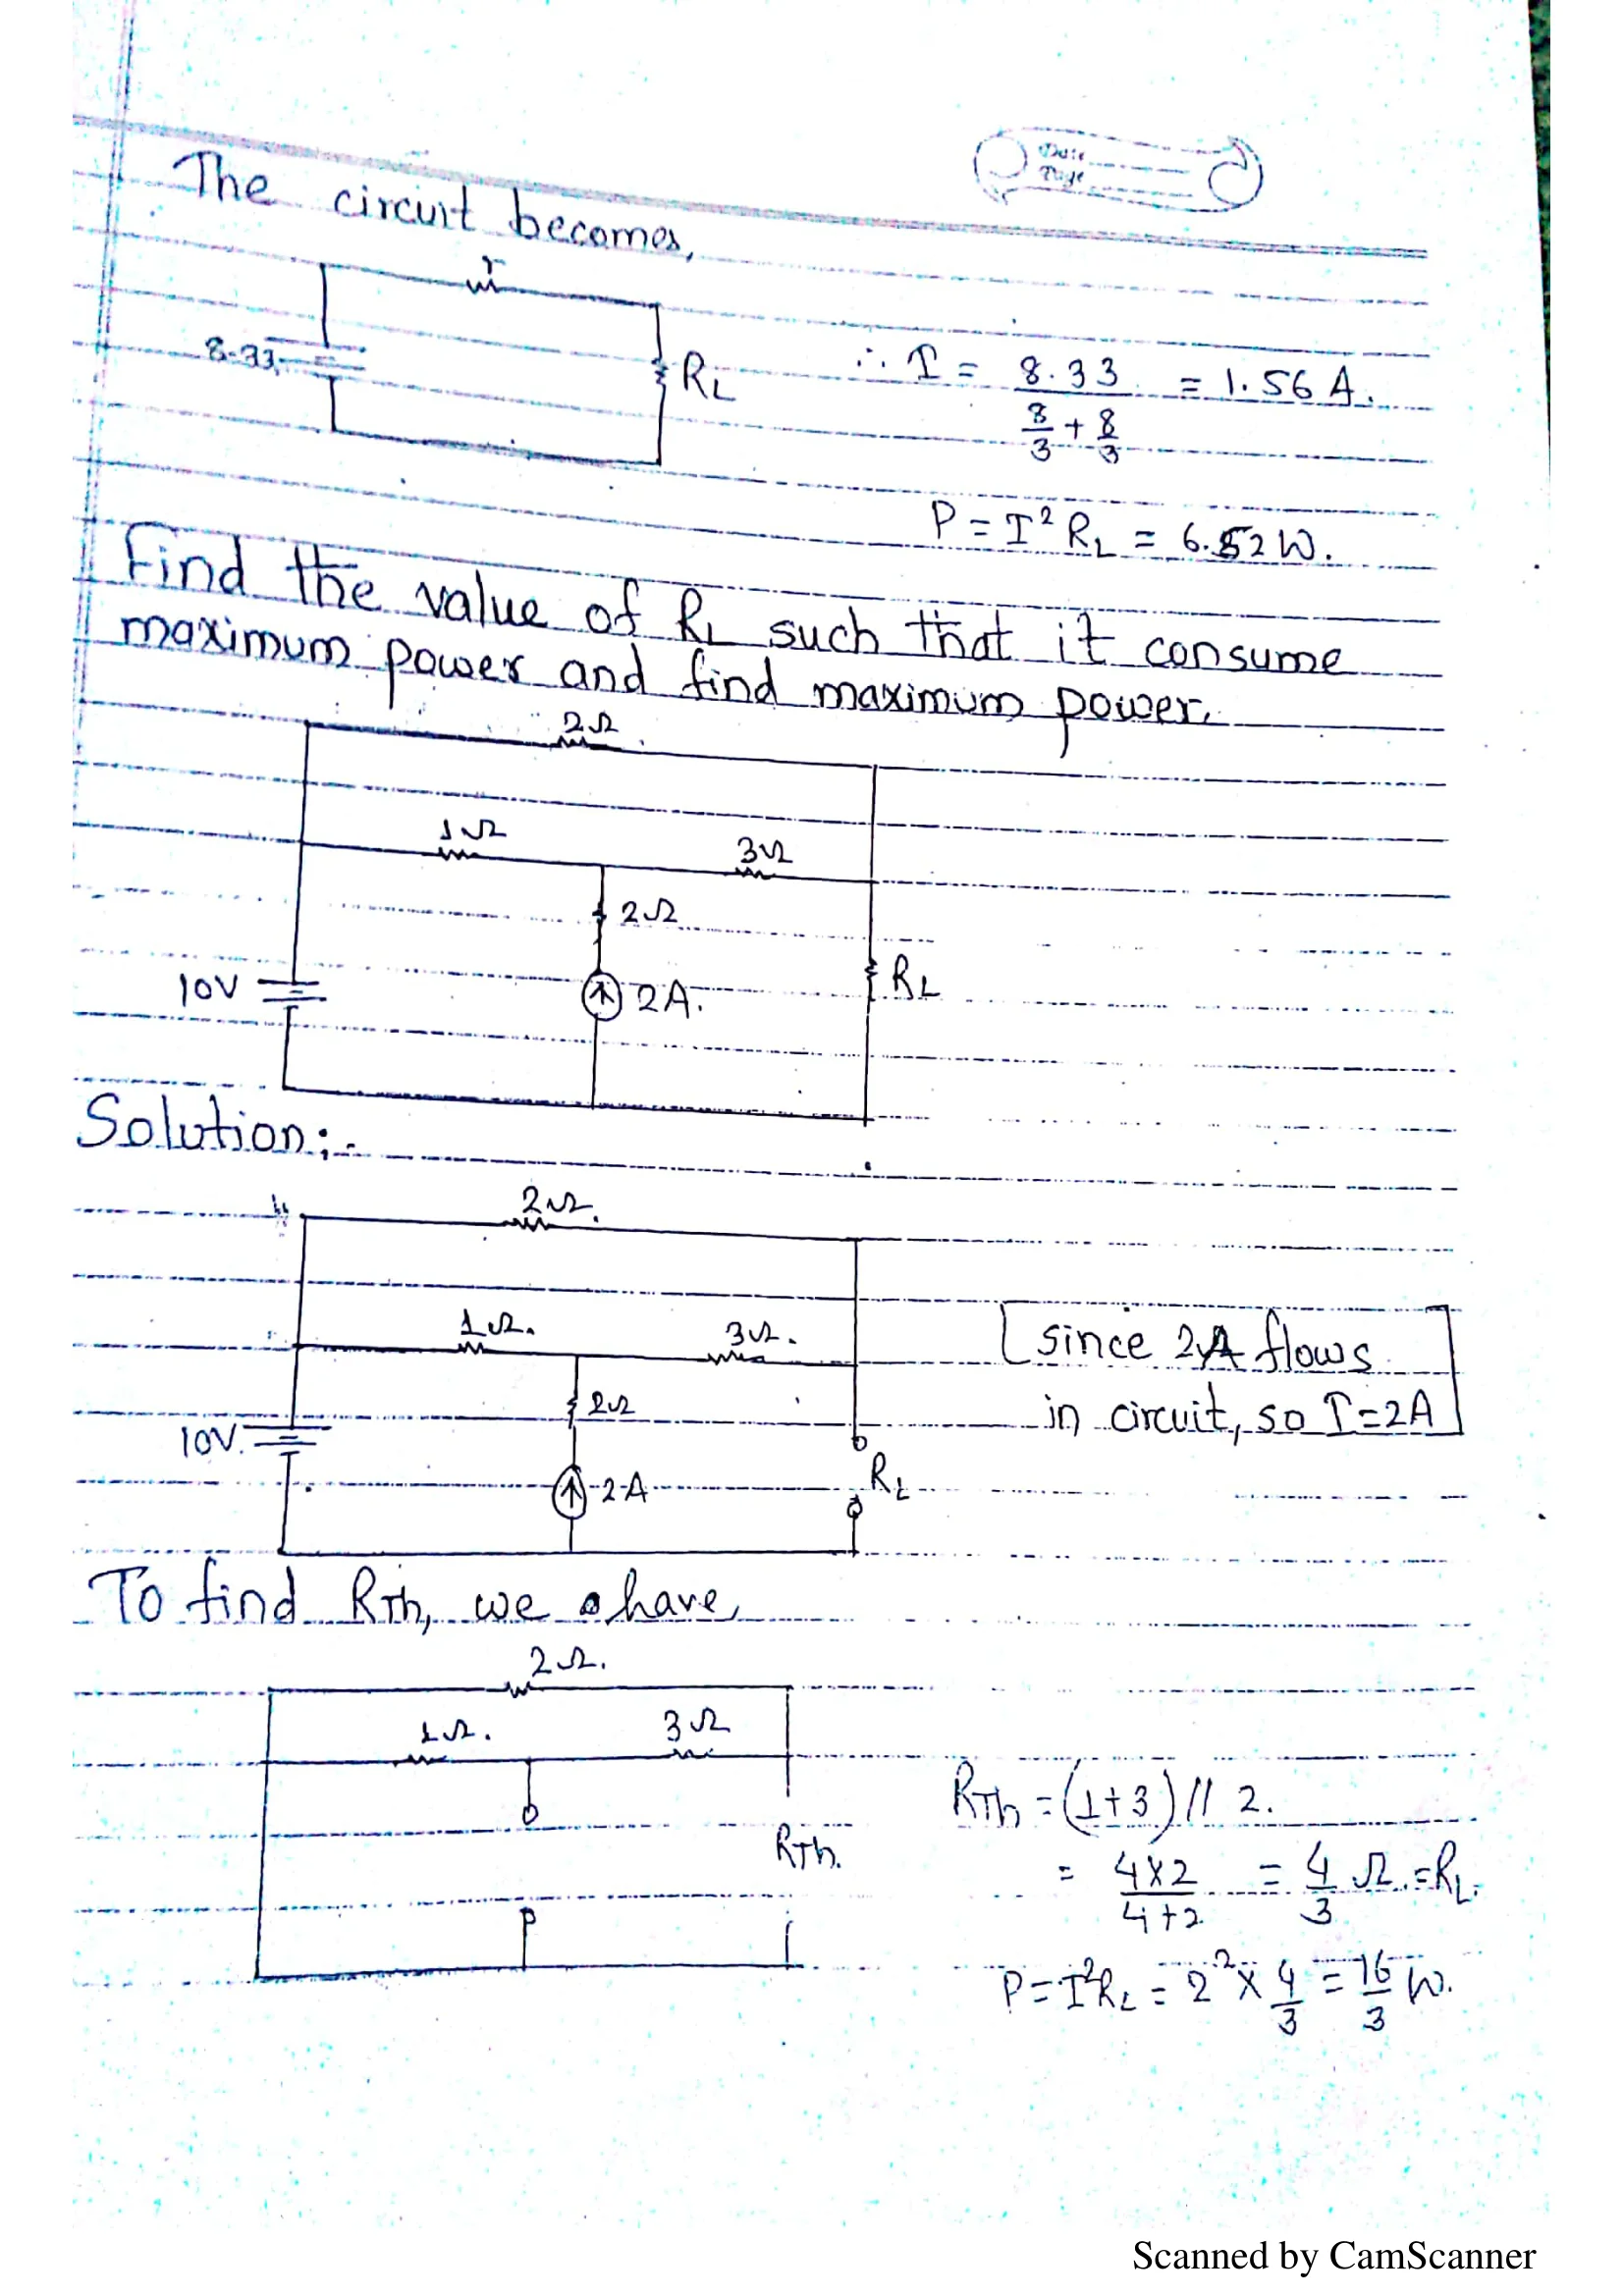 Date
Page
The circuit becomes,
r
8.33
RL
∴ I = 8.33 / (8/3 + 8/3) = 1.56 A.
P = I² RL = 6.52 W.
Find the value of RL such that it consume
maximum power and find maximum power.
2Ω
1Ω
3Ω
2Ω
10V
2A.
RL
Solution:-
2Ω.
1Ω.
3Ω.
since 2A flows
in circuit, so I=2A
2Ω
10V.
2A
RL
To find RTh, we have,
2Ω.
1Ω.
3Ω
RTh.
RTh = (1+3) // 2.
= 4×2 / 4+2 = 4/3 Ω = RL.
P = I²RL = 2² × 4/3 = 16/3 W.
Scanned by CamScanner